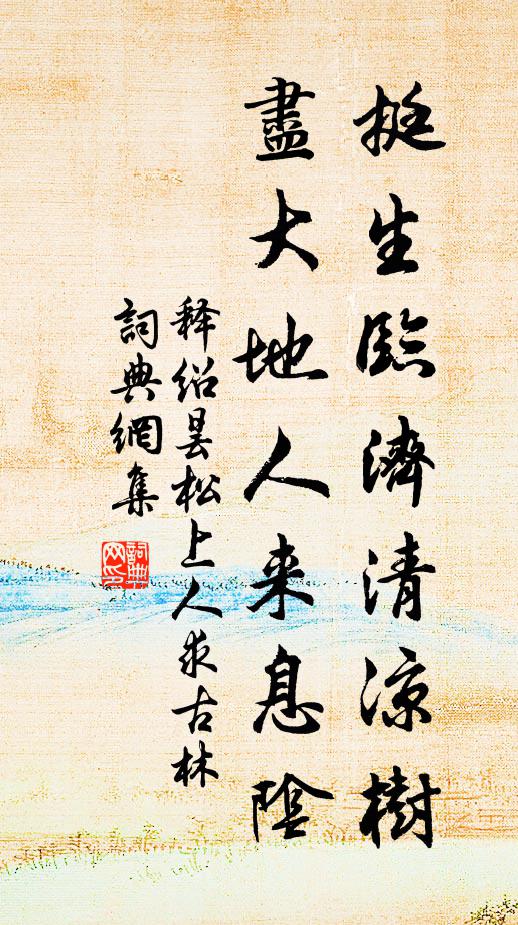 挺生臨濟清涼樹
盡大地人来息陰
释绍昙松上人求古林
詞典網集
詞典
网印